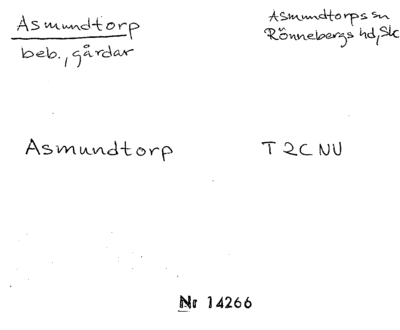 Asmundtorp
beb., gårdar
Asmundtorps sn
Rönnebergs hd, Sk
Asmundtorp
T 2C NU
Nr 14266